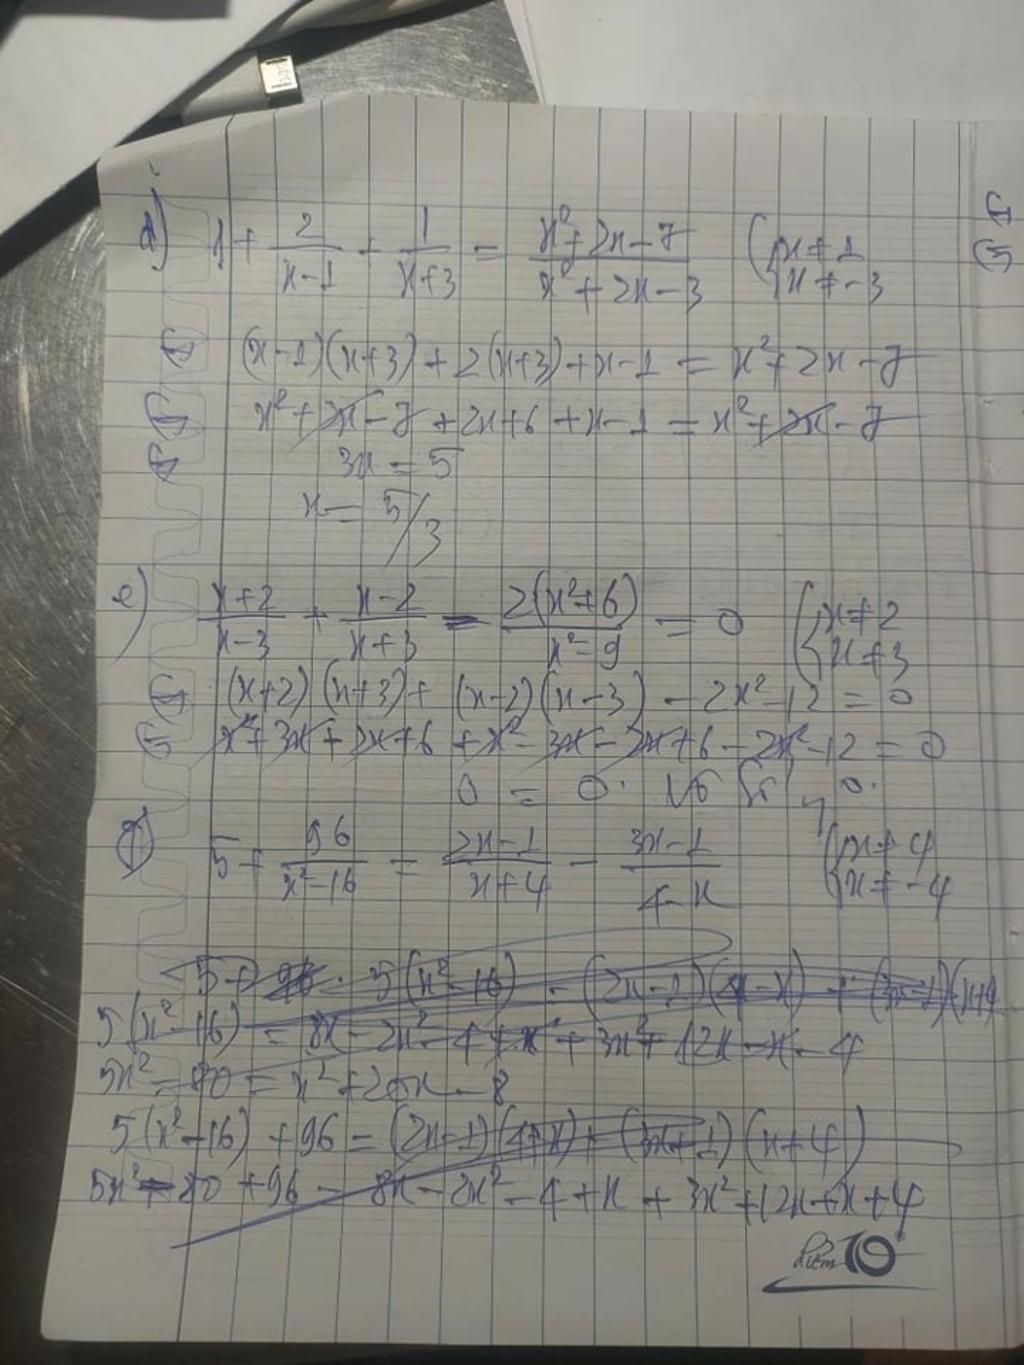 d) 1 + 2/(x-1) + 1/(x+3) = (x²+2x-7)/(x²+2x-3) { x ≠ 1
x ≠ -3
⇔ (x-1)(x+3) + 2(x+3) + x-1 = x²+2x-7
⇔ x²+2x-7+2x+6+x-1 = x²+2x-7
⇔ 3x = 5
x = 5/3
e) (x+2)/(x-3) + (x-2)/(x+3) - 2(x²+6)/(x²-9) = 0 { x ≠ 2
x ≠ 3
⇔ (x+2)(x+3) + (x-2)(x-3) - 2x²-12 = 0
⇔ x²+3x+2x+6+x²-3x-2x+6-2x²-12 = 0
0 = 0
f) 5 + 96/(x²-16) = (2x-1)/(x+4) - (3x-1)/(4-x) { x ≠ 4
x ≠ -4
5 + 96 5(x²-16) = (2x-1)(4-x) + (3x-1)(x+4
5(x²-16) = 8x-2x²-4+x+3x²+12x-x-4
5x²-80 = x²+20x-8
5(x²-16)+96 = (2x-1)(4-x)+(3x+1)(x+4)
5x²-80+96 = 8x-2x²-4+x+3x²+12x+x+4
Điểm 10